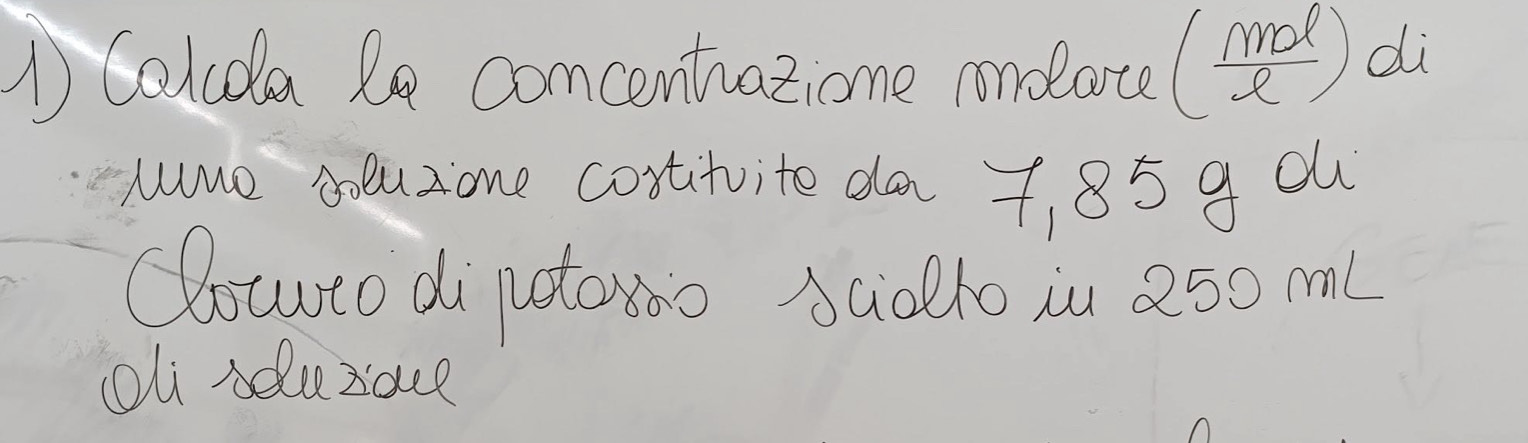 1) Calcola la concentrazione molare (mol/l) di
una soluzione costituita da 7,85 g di
Cloruro di potassio sciolto in 250 mL
di soluzione